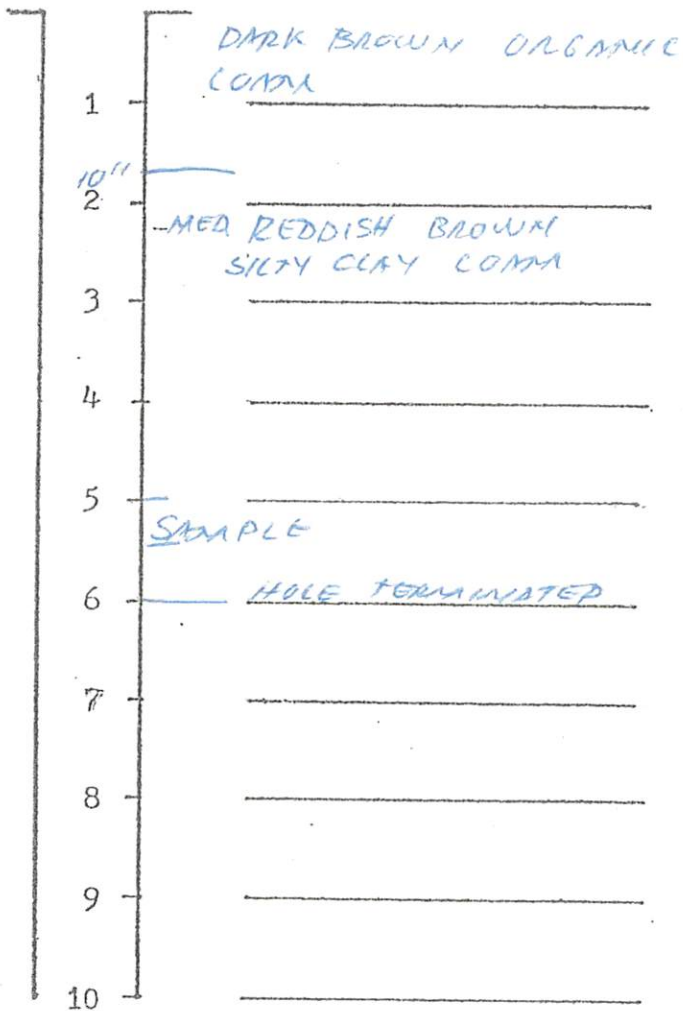 DARK BROWN ORGANIC
LOAM
1
10"
2
MED REDDISH BROWN
SILTY CLAY LOAM
3
4
5
SAMPLE
6 HOLE TERMINATED
7
8
9
10